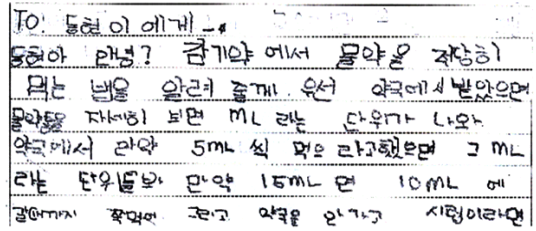 TO: 동현이에게
동현아 안녕? 감기약에서 물약을 적당히
먹는 법을 알려 줄게 우선 약국에서 받았으면
물약통을 자세히 보면 ML 라는 단위가 나와
약국에서 만약 5ML 씩 먹으라고했으면 그 ML
라는 단위를봐 만약 15ML 면 10ML 에
갈때까지 쭉먹어 그리고 약국을 안가고 시럽이라면